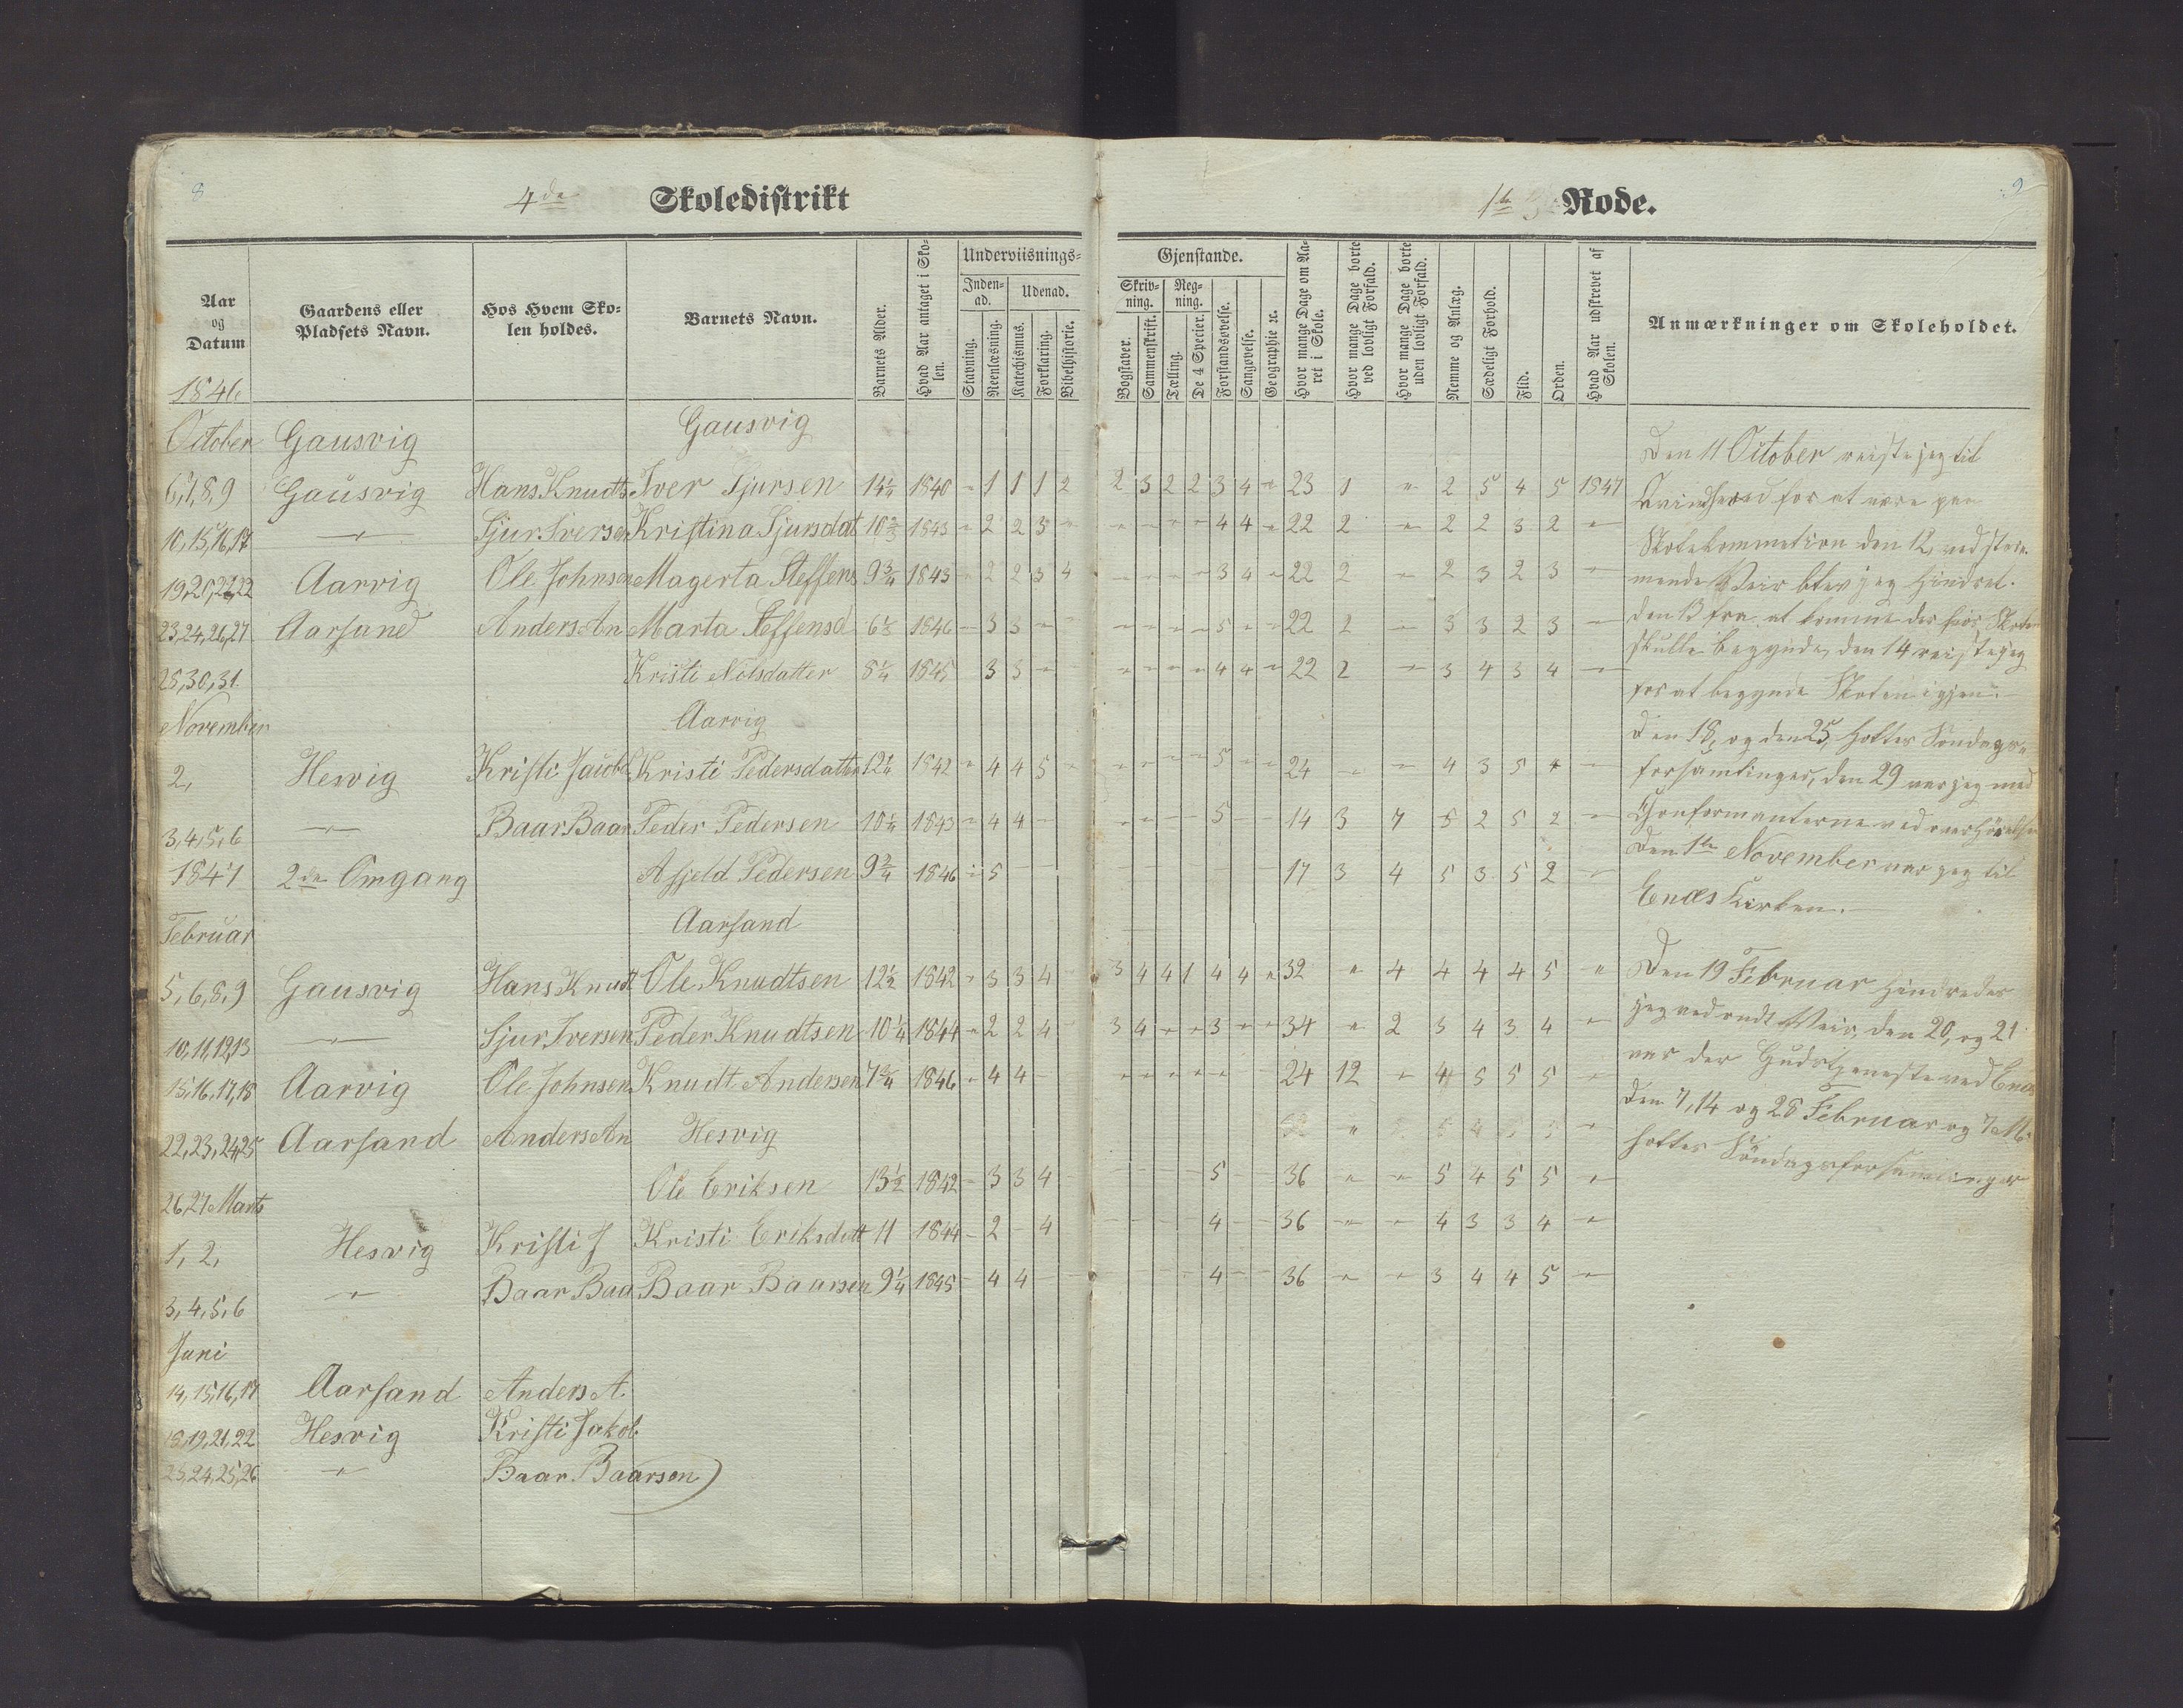 8
4de Skoledistrikt
1te Rode.
9
Aar og Datum
Gaardens eller Pladsets Navn.
Hos Hvem Skolen holdes.
Barnets Navn.
Barnets Alder.
Hvad Aar antaget i Skolen.
Underviisnings-
Inden-ad.
Udenad.
Stavning.
Reenlæsning.
Katechismus.
Forklaring.
Bibelhistorie.
Gjenstande.
Skriv-ning.
Reg-ning.
Bogstaver.
Sammenskrift.
Tælling.
De 4 Specier.
Forstandsøvelse.
Sangøvelse.
Geographie ꝛc.
Hvor mange Dage om Aaret i Skole.
Hvor mange Dage borte ved lovligt Forfald.
Hvor mange Dage borte uden lovligt Forfald.
Nemme og Anlæg.
Sædeligt Forhold.
Flid.
Orden.
Hvad Aar udskrevet af Skolen.
Anmærkninger om Skoleholdet.
1846
October Gausvig Gausvig
6,7,8,9 Gausvig Hans Knudts Iver Sjursen 14¼ 1840 " 1 1 1 2 2 3 2 2 3 4 " 23 1 " 2 5 4 5 1847
10,15,16,17 " Sjur Iversen Kristina Sjursdat 1843 " 2 2 3 " " " " " 4 4 " 22 2 " 2 2 3 2 "
19,20,21,22 Aarvig Ole Johnsen Magerta Steffens 9¾ 1843 " 2 2 3 4 " " " " 3 4 " 22 2 " 2 3 2 3 "
23,24,26,27 Aarsand Anders An Marta Steffensd 1846 " 3 3 " " " " " " 5 " " 22 2 " 3 3 2 3 "
28,30,31. Kristi Nilsdatter 8¼ 1845 3 3 " " " " " 4 4 " 22 2 " 3 4 3 4 "
November Aarvig
2, Hesvig Kristi Jacobs Kristi Pedersdatter 12¼ 1842 " 4 4 5 " " " " " 5 " " 24 " " 4 3 5 4 "
3,4,5,6 " Baar Baar Peder Pedersen 10¼ 1843 " 4 4 " " " " 5 " " 14 3 7 5 2 5 2 "
1847 2den Omgang Asjeld Pedersen 9¾ 1846 " 5 17 3 4 5 3 5 2 "
Februar Aarsand
5,6,8,9 Gausvig Hans Knudt Ole Knudtsen 12½ 1842 " 3 3 4 3 4 4 1 4 4 " 32 " 4 4 4 4 5 "
10,11,12,13 " Sjur Iversen Peder Knudtsen 10¼ 1844 " 2 2 4 3 4 " " 3 " " 34 " 2 3 4 3 4 "
15,16,17,18 Aarvig Ole Johnsen Knudt Andersen 7¾ 1846 " 4 4 " " " " " 24 12 " 4 5 5 5 "
22,23,24,25 Aarsand Anders An Hesvig
26,27 Marts Ole Eriksen 13½ 1842 " 3 3 4 5 36 " " 5 4 5 5 "
1, 2, Hesvig Kristi J Kristi Eriksdatt 11 1844 " 2 " 4 4 36 " " 4 3 3 4 "
3,4,5,6 " Baar Baa Baar Baarsen 9¼ 1845 4 4 4 36 " " 3 4 4 5 "
Juni
14,15,16,17 Aarsand Anders A.
18,19,21,22 Hesvig Kristi Jakob
23,24,25,26 " Baar Baarsen
Den 11 October reiste jeg til
Qvindherred for at være paa
Skolekommetion den 12, ved
mende Veir blev jeg hindret
den 13 fra at komme der hvor Skolen
skulle begynde, den 14 reiste jeg
for at begynde Skolen igjen.
Den 18, og den 25, holtes Søndags-
forsamlinger, den 29 var jeg med
Confermanterne ved overhørelse
Den 1te November var jeg til
Enæs Kirken.
Den 19 Februar hindredes
jeg ved ondt Veir, den 20, og 21
var der Gudstjeneste ved Enæs
Den 7, 14 og 28 Februar og 7 M.
holtes Søndagsforsamlinger